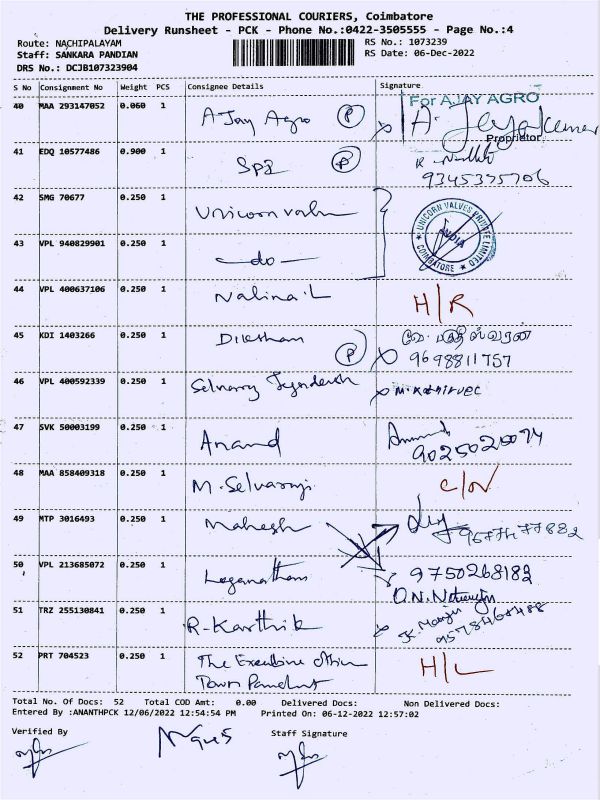 THE PROFESSIONAL COURIERS, Coimbatore
Delivery Runsheet - PCK - Phone No.:0422-3505555 - Page No.:4
Route: NACHIPALAYAM
RS No.: 1073239
Staff: SANKARA PANDIAN
RS Date: 06-Dec-2022
DRS No.: DCJB107323904
S No Consignment No Weight PCS Consignee Details Signature
40 MAA 293147052 0.060 1 A Jay Agro P For AJAY AGRO
Proprietor
41 EDQ 10577486 0.900 1 P
9345375706
42 SMG 70677 0.250 1 Unicorn UNICORN VALVES PRIVATE LIMITED
INDIA
COIMBATORE
43 VPL 940829901 0.250 1 -do-
44 VPL 400637106 0.250 1 Nalina.L H/R
45 KDI 1403266 0.250 1 P
9698811757
46 VPL 400592339 0.250 1 M.Kathirvel
47 SVK 50003199 0.250 1 Anand
9025020074
48 MAA 858409318 0.250 1 M.Selvaraj
49 MTP 3016493 0.250 1 Mahesh
50 VPL 213685072 0.250 1 Loganathan 9750268182
51 TRZ 255130841 0.250 1 R-Karthik
9578468488
52 PRT 704523 0.250 1 The Executive H/L
Town
Total No. Of Docs: 52 Total COD Amt: 0.00 Delivered Docs: Non Delivered Docs:
Entered By :ANANTHPCK 12/06/2022 12:54:54 PM Printed On: 06-12-2022 12:57:02
Verified By Staff Signature